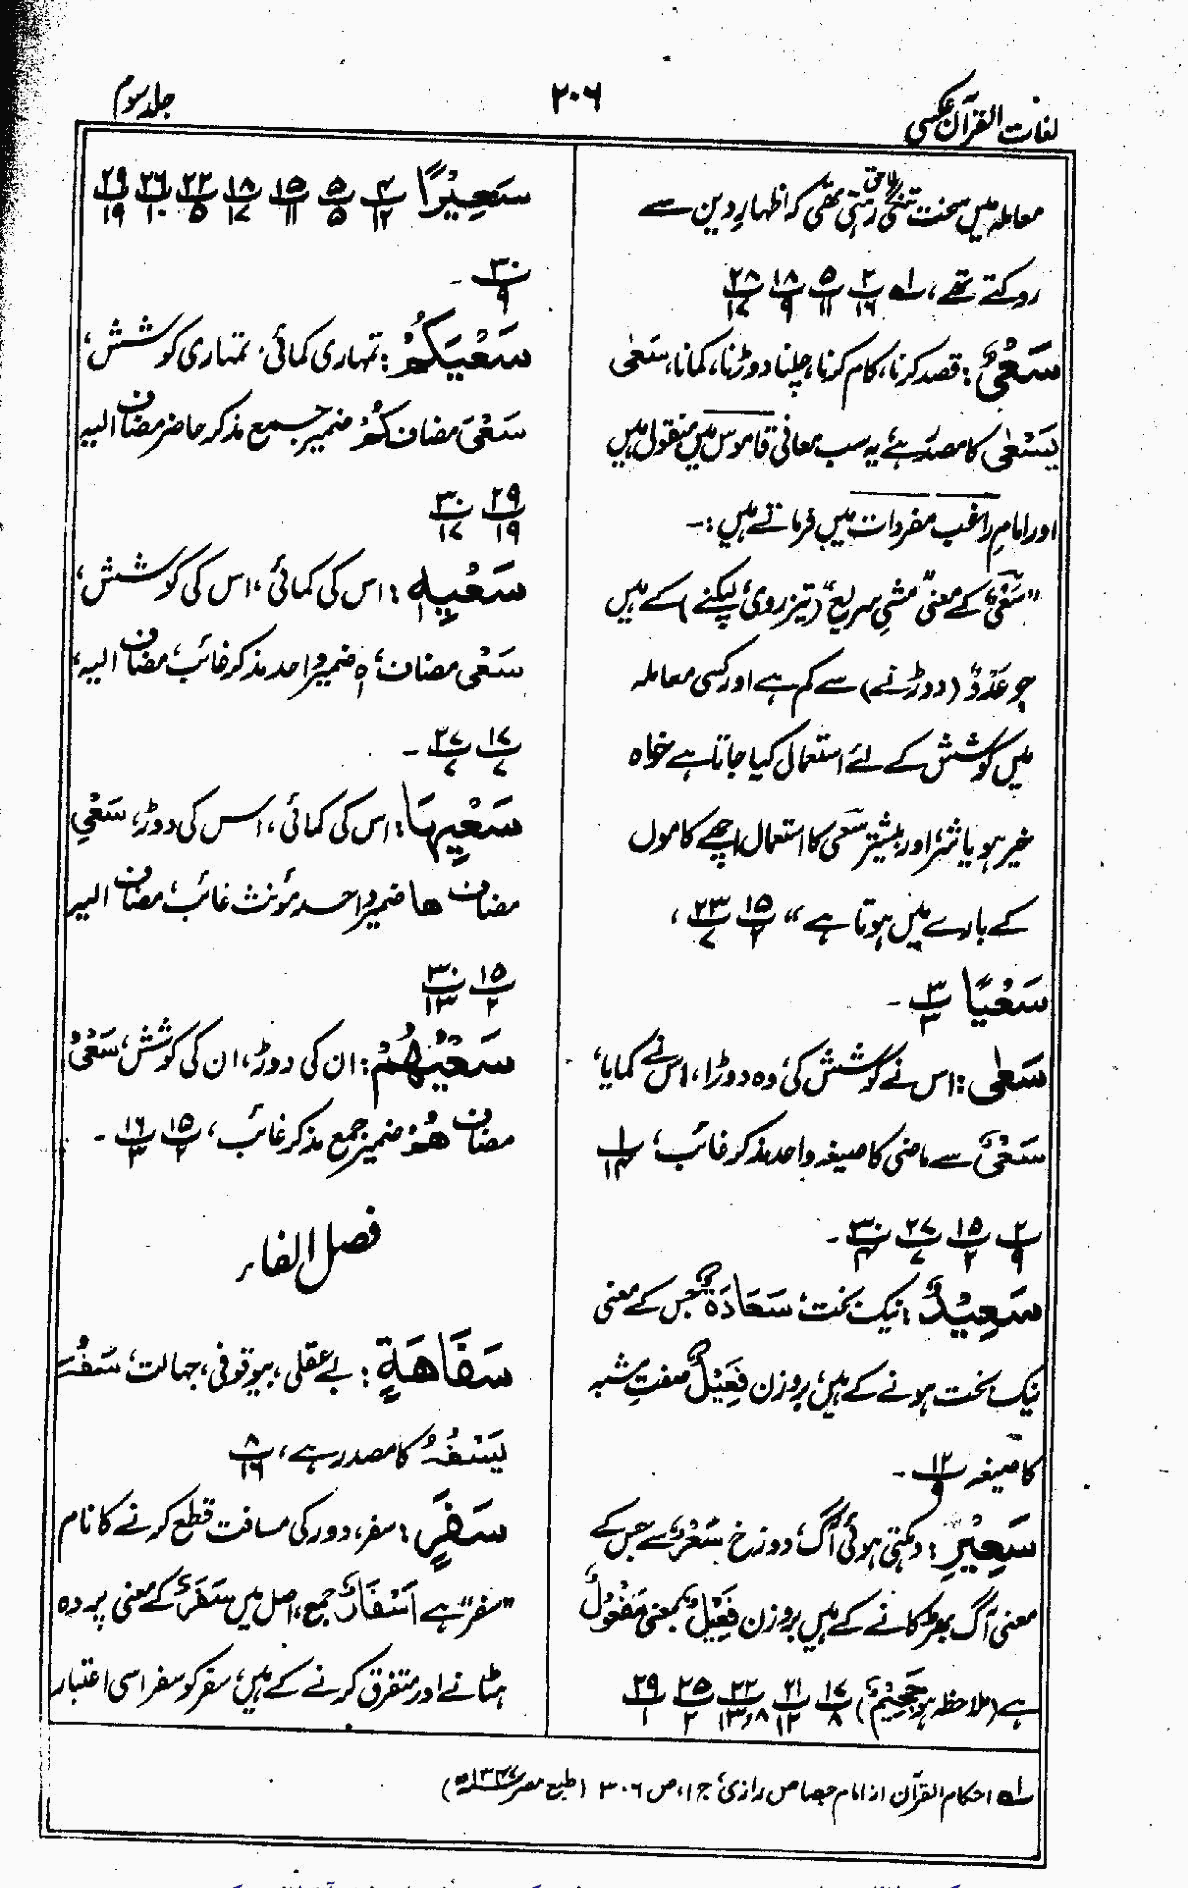 لغات القرآن عکسی
۲۰۶
جلد سوم
معاملہ میں سخت تنگی لاحق رہتی تھی کہ اظہارِ دین سے
روکتے تھے، ۱ھ ۲ب۱۶ ۵ب۱۱ ۱۸ب۹ ۲۸ب۱۷
سَعْیٌ: قصد کرنا، کام کرنا، چلنا دوڑنا، کمانا، سَعٰی
یَسْعٰی کا مصدر ہے، یہ سب معانی قاموس میں منقول ہیں
اور امام راغب مفردات میں فرماتے ہیں:-
"سَعْیٌ کے معنی مشیِ سریع (تیز روی، لپکنے) کے ہیں
جو عَدْوٌ (دوڑنے) سے کم ہے اور کسی معاملہ
میں کوشش کے لئے استعمال کیا جاتا ہے خواہ
خیر ہو یا شر، اور بیشتر سَعْی کا استعمال اچھے کاموں
کے بارے میں ہوتا ہے" ۱۵ب۲ ۲۳ب۷،
سَعْیًا ۳ب۳ -
سَعٰی: اس نے کوشش کی، وہ دوڑا، اس نے کمایا،
سَعْیٌ سے ماضی کا صیغہ واحد مذکر غائب، ۱ب۱۴
۲ب۹ ۱۵ب۲ ۲۷ب۷ ۳۰ب۴ -
سَعِیْدٌ: نیک بخت، سَعَادَۃٌ جس کے معنی
نیک بخت ہونے کے ہیں، بروزن فَعِیْلٌ صفتِ مشبہ
کا صیغہ ۱۲ب۹ -
سَعِیْرِ: دہکتی ہوئی آگ، دوزخ، سَعْرٌ سے جس کے
معنی آگ بھڑکانے کے ہیں بروزن فَعِیْلٌ بمعنی مَفْعُوْلٌ
ہے (ملاحظہ ہو جَحِیْمٌ) ۱۷ب۸ ۲۱ب۱۲ ۲۲ب۸،۱۳ ۲۵ب۲ ۲۹ب۱
سَعِیْرًا ۴ب۱۲ ۵ب۵ ۱۵ب۱۱ ۱۸ب۱۷ ۲۲ب۵ ۲۶ب۱۰ ۲۹ب۱۹
۳۰ب۹ -
سَعْیَکُمْ: تمہاری کمائی، تمہاری کوشش،
سَعْیَ مضاف کُمْ ضمیر جمع مذکر حاضر مضاف الیہ
۲۹ب۱۹ ۳۰ب۱۷
سَعْیِہٖ: اس کی کمائی، اس کی کوشش،
سَعْیِ مضاف، ہٖ ضمیر واحد مذکر غائب، مضاف الیہ،
۱۷ب۷ ۲۷ب۷ -
سَعْیِہَا: اس کی کمائی، اس کی دوڑ، سَعْیِ
مضاف ھا ضمیر واحد مؤنث غائب، مضاف الیہ
۱۵ب۲ ۳۰ب۱۳
سَعْیُہُمْ: ان کی دوڑ، ان کی کوشش، سَعْیُ
مضاف ھُمْ ضمیر جمع مذکر غائب، ۱۵ب۲ ۱۶ب۳ -
فصل الفاء
سَفَاھَۃٍ: بے عقلی، بیوقوفی، جہالت، سَفُہَ
یَسْفُہُ کا مصدر ہے، ۸ب۱۶
سَفَرٍ: سفر، دور کی مسافت قطع کرنے کا نام
"سفر" ہے اَسْفَارٌ جمع، اصل میں سَفْرٌ کے معنی پردہ
ہٹانے اور متفرق کرنے کے ہیں، سفر کو سفر اسی اعتبار
۱ھ احکام القرآن از امام جصاص رازی، ج ۱، ص ۳۰۶ (طبع مصر ۱۳۴۷ھ)